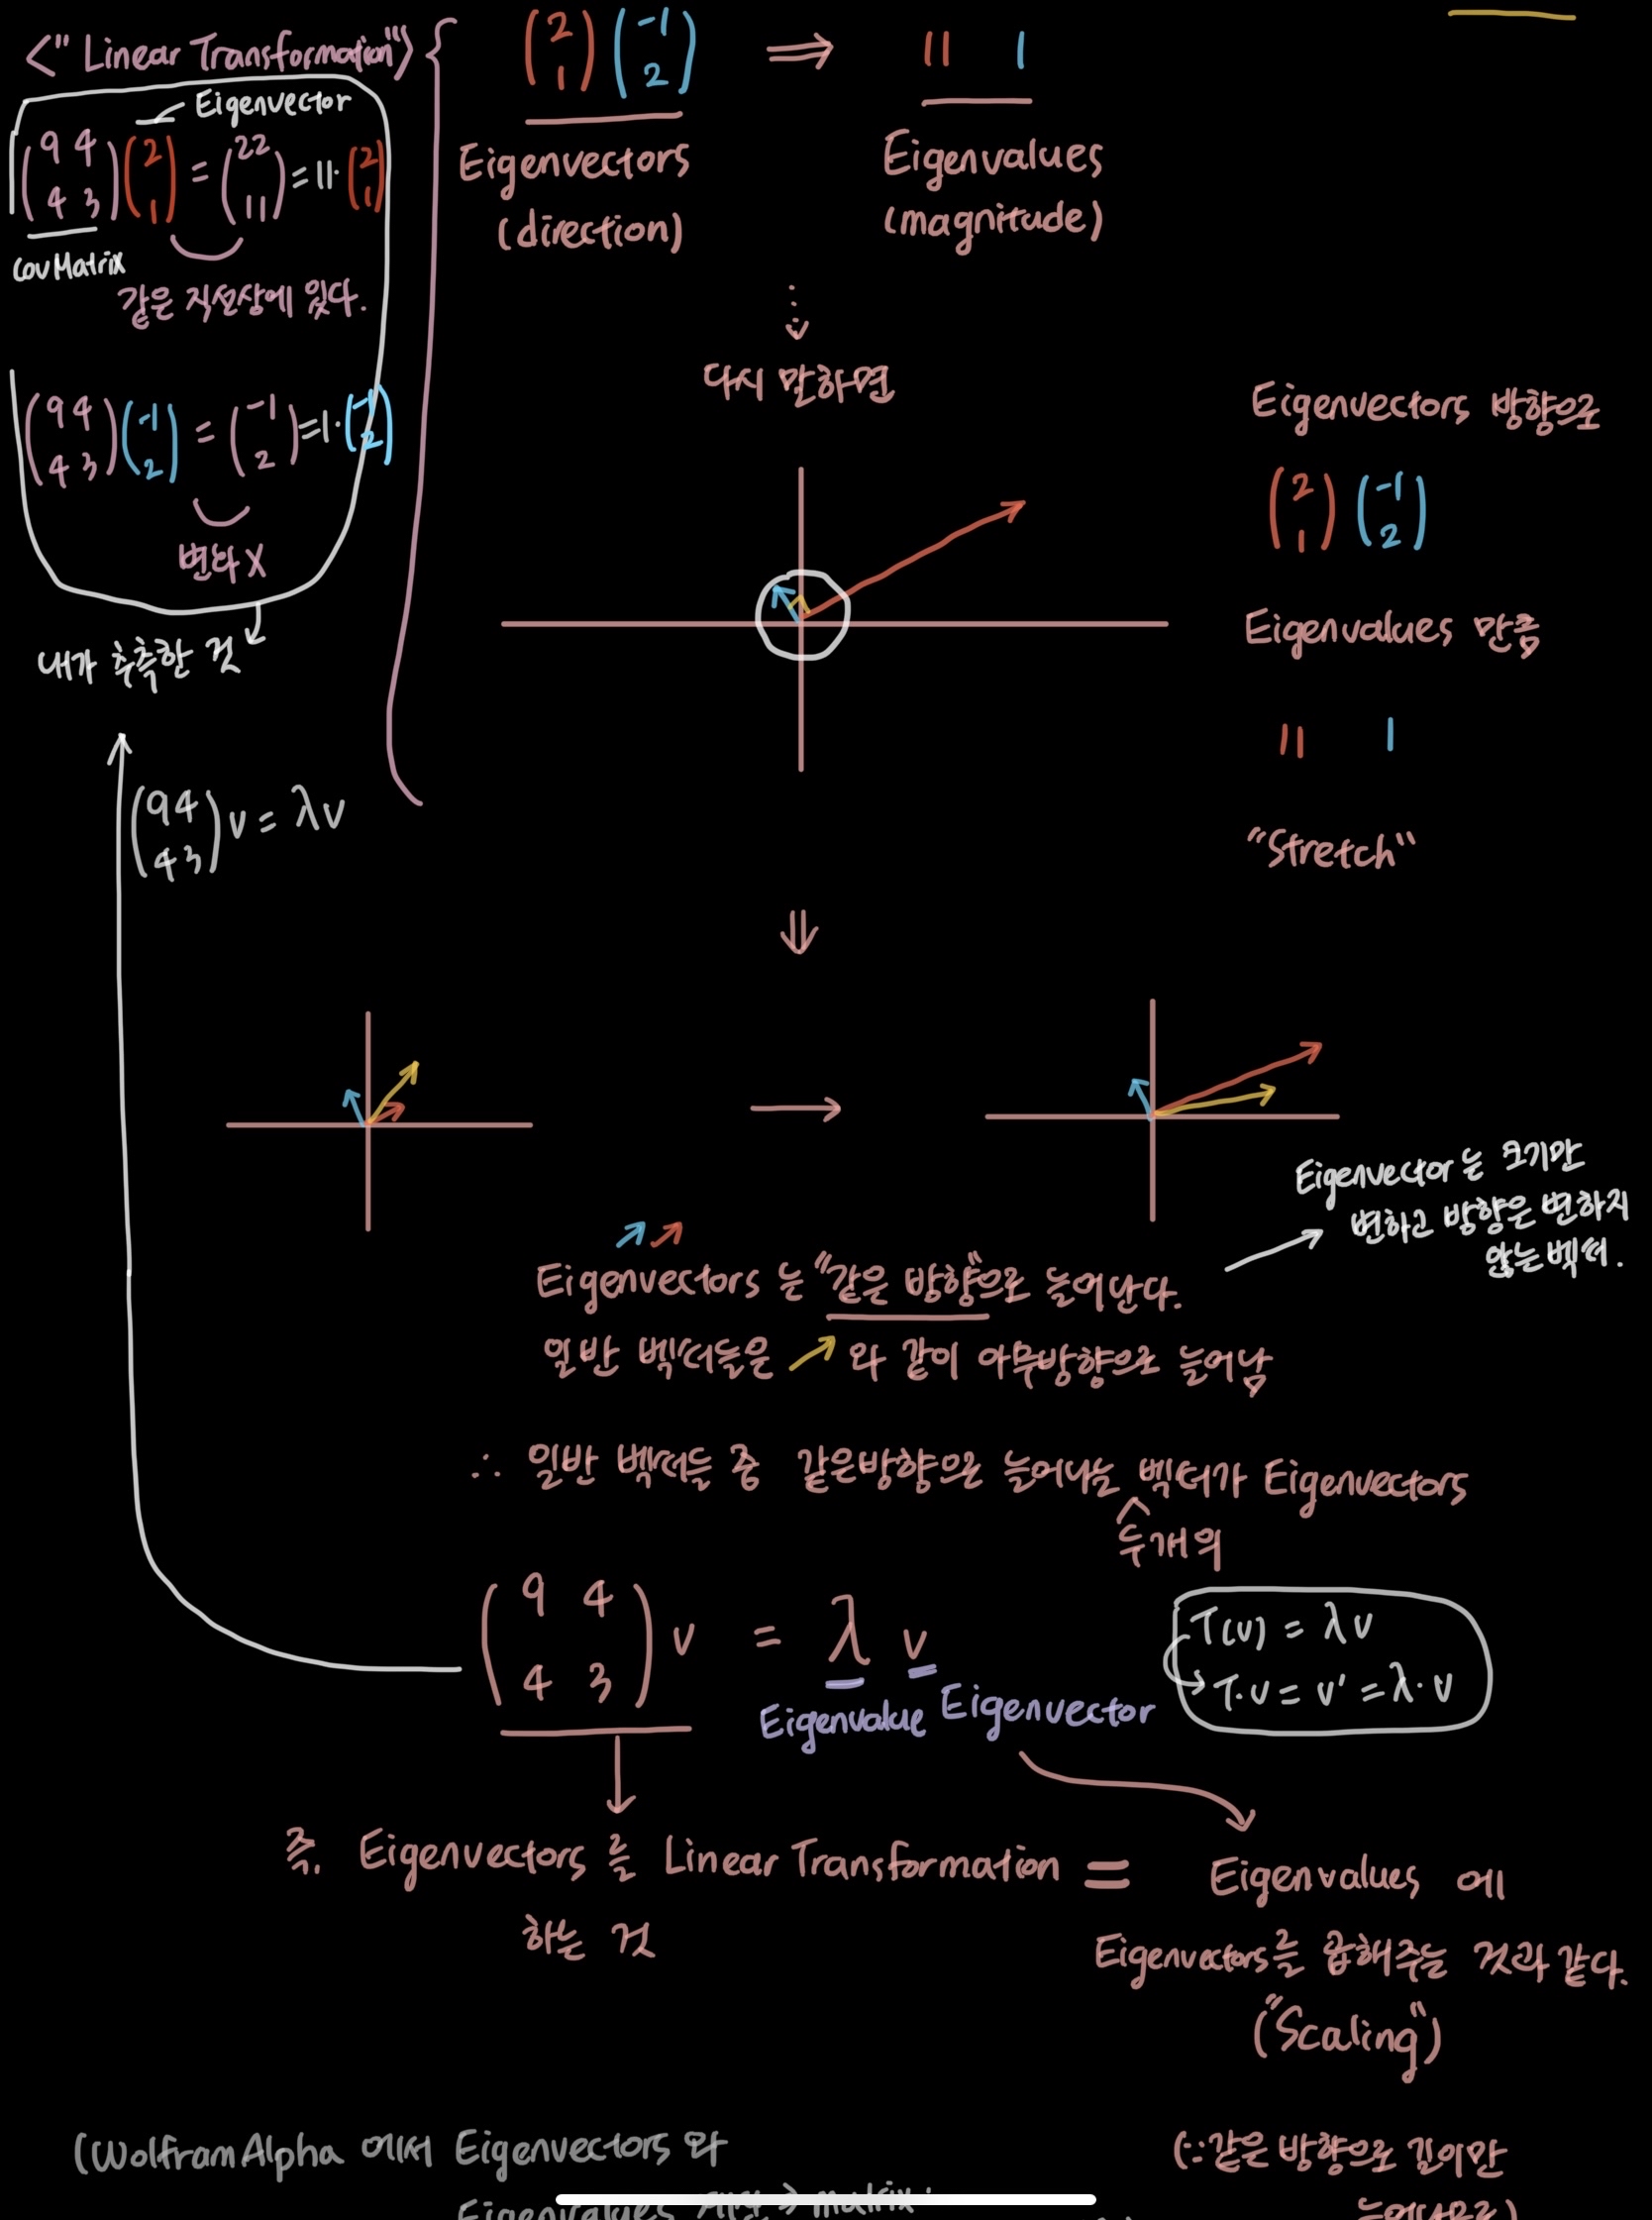 <"Linear Transformation">
Eigenvector
(9 4 4 3)(2 1) = (22 11) = 11·(2 1)
Cov Matrix
같은 직선상에 있다.
(9 4 4 3)(-1 2) = (-1 2) = 1·(-1 2)
변화 X
내가 추측한 것
(9 4 4 3) v = λv
(2 1) (-1 2) ⇒ 11 1
Eigenvectors Eigenvalues
(direction) (magnitude)
다시 말하면
Eigenvectors 방향으로
(2 1) (-1 2)
Eigenvalues 만큼
11 1
"Stretch"
Eigenvector는 크기만
변하고 방향은 변하지
않는 벡터.
Eigenvectors 는 "같은 방향"으로 늘어난다.
일반 벡터들은 ↗ 와 같이 아무방향으로 늘어남
∴ 일반 벡터들 중 같은방향으로 늘어나는 벡터가 Eigenvectors
두개의
(9 4 4 3) v = λ v
Eigenvalue Eigenvector
T(v) = λv
T·v = v' = λ·v
즉, Eigenvectors 를 Linear Transformation = Eigenvalues 에
하는 것
Eigenvectors를 곱해주는 것과 같다.
("Scaling")
(WolframAlpha 에서 Eigenvectors 와
(∵같은 방향으로 길이만
Eigenvalues → matrix:
늘어나므로)